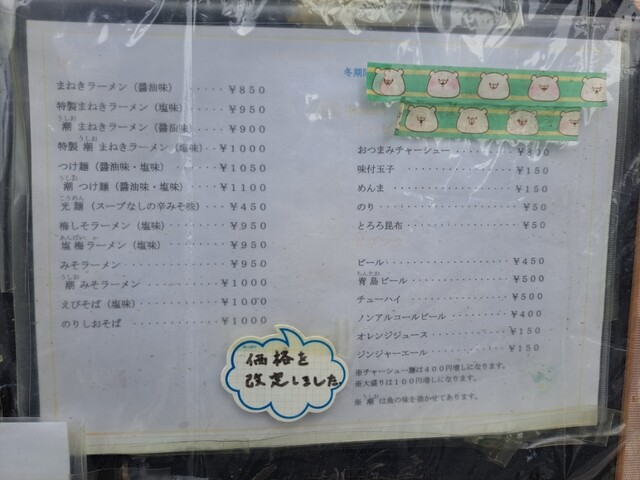 まねきラーメン（醤油味） ‥‥‥ ￥850
特製まねきラーメン（塩味） ‥‥‥ ￥950
うしお
潮 まねきラーメン（醤油味） ‥‥‥ ￥900
うしお
特製 潮 まねきラーメン（塩味） ‥‥ ￥1000
つけ麺（醤油味・塩味） ‥‥‥ ￥1050
うしお
潮 つけ麺（醤油味・塩味） ‥‥‥ ￥1100
こうめん
光麺（スープなしの辛みそ味） ‥‥ ￥450
梅しそラーメン（塩味） ‥‥‥ ￥950
塩梅ラーメン（塩味） ‥‥‥ ￥950
みそラーメン ‥‥‥ ￥950
うしお
潮 みそラーメン ‥‥‥ ￥1000
えびそば（塩味） ‥‥‥ ￥1000
のりしおそば ‥‥‥ ￥1000
価格を
改定しました
冬期
おつまみチャーシュー ‥‥‥ ￥300
味付玉子 ‥‥‥ ￥150
めんま ‥‥‥ ￥150
のり ‥‥‥ ￥50
とろろ昆布 ‥‥‥ ￥50
ビール ‥‥‥ ￥450
ちんたお
青島ビール ‥‥‥ ￥500
チューハイ ‥‥‥ ￥500
ノンアルコールビール ‥‥‥ ￥400
オレンジジュース ‥‥‥ ￥150
ジンジャーエール ‥‥‥ ￥150
※チャーシュー麺は４００円増しになります。
※大盛りは１００円増しになります。
うしお
※ 潮 は魚の味を強かせてあります。